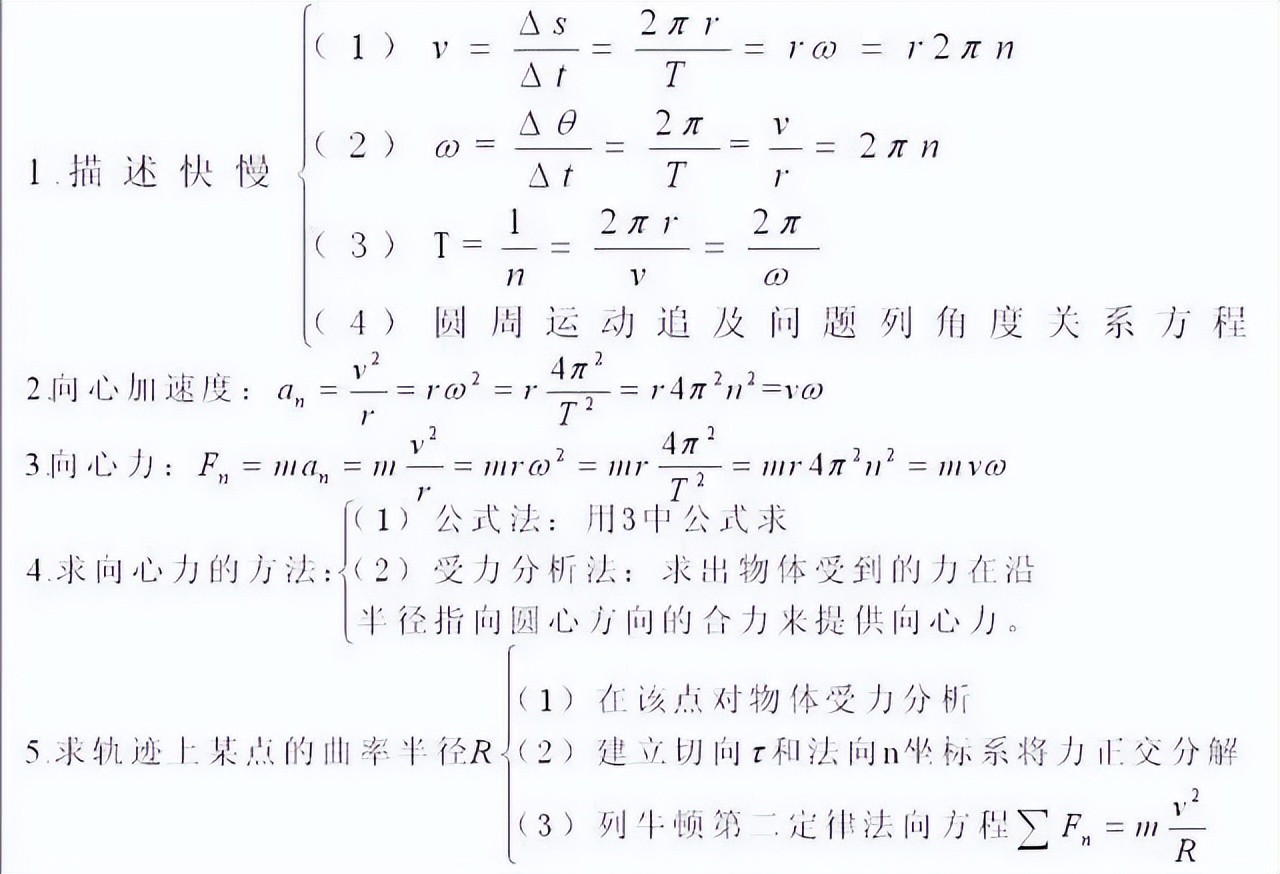 1.描述快慢
(1) v = Δs/Δt = 2πr/T = rω = r2πn
(2) ω = Δθ/Δt = 2π/T = v/r = 2πn
(3) T = 1/n = 2πr/v = 2π/ω
(4) 圆周运动追及问题列角度关系方程
2.向心加速度：aₙ = v²/r = rω² = r 4π²/T² = r4π²n² = vω
3.向心力：Fₙ = maₙ = m v²/r = mrω² = mr 4π²/T² = mr4π²n² = mvω
4.求向心力的方法：
(1) 公式法：用3中公式求
(2) 受力分析法：求出物体受到的力在沿
半径指向圆心方向的合力来提供向心力。
5.求轨迹上某点的曲率半径R
(1) 在该点对物体受力分析
(2) 建立切向τ和法向n坐标系将力正交分解
(3) 列牛顿第二定律法向方程∑Fₙ = m v²/R